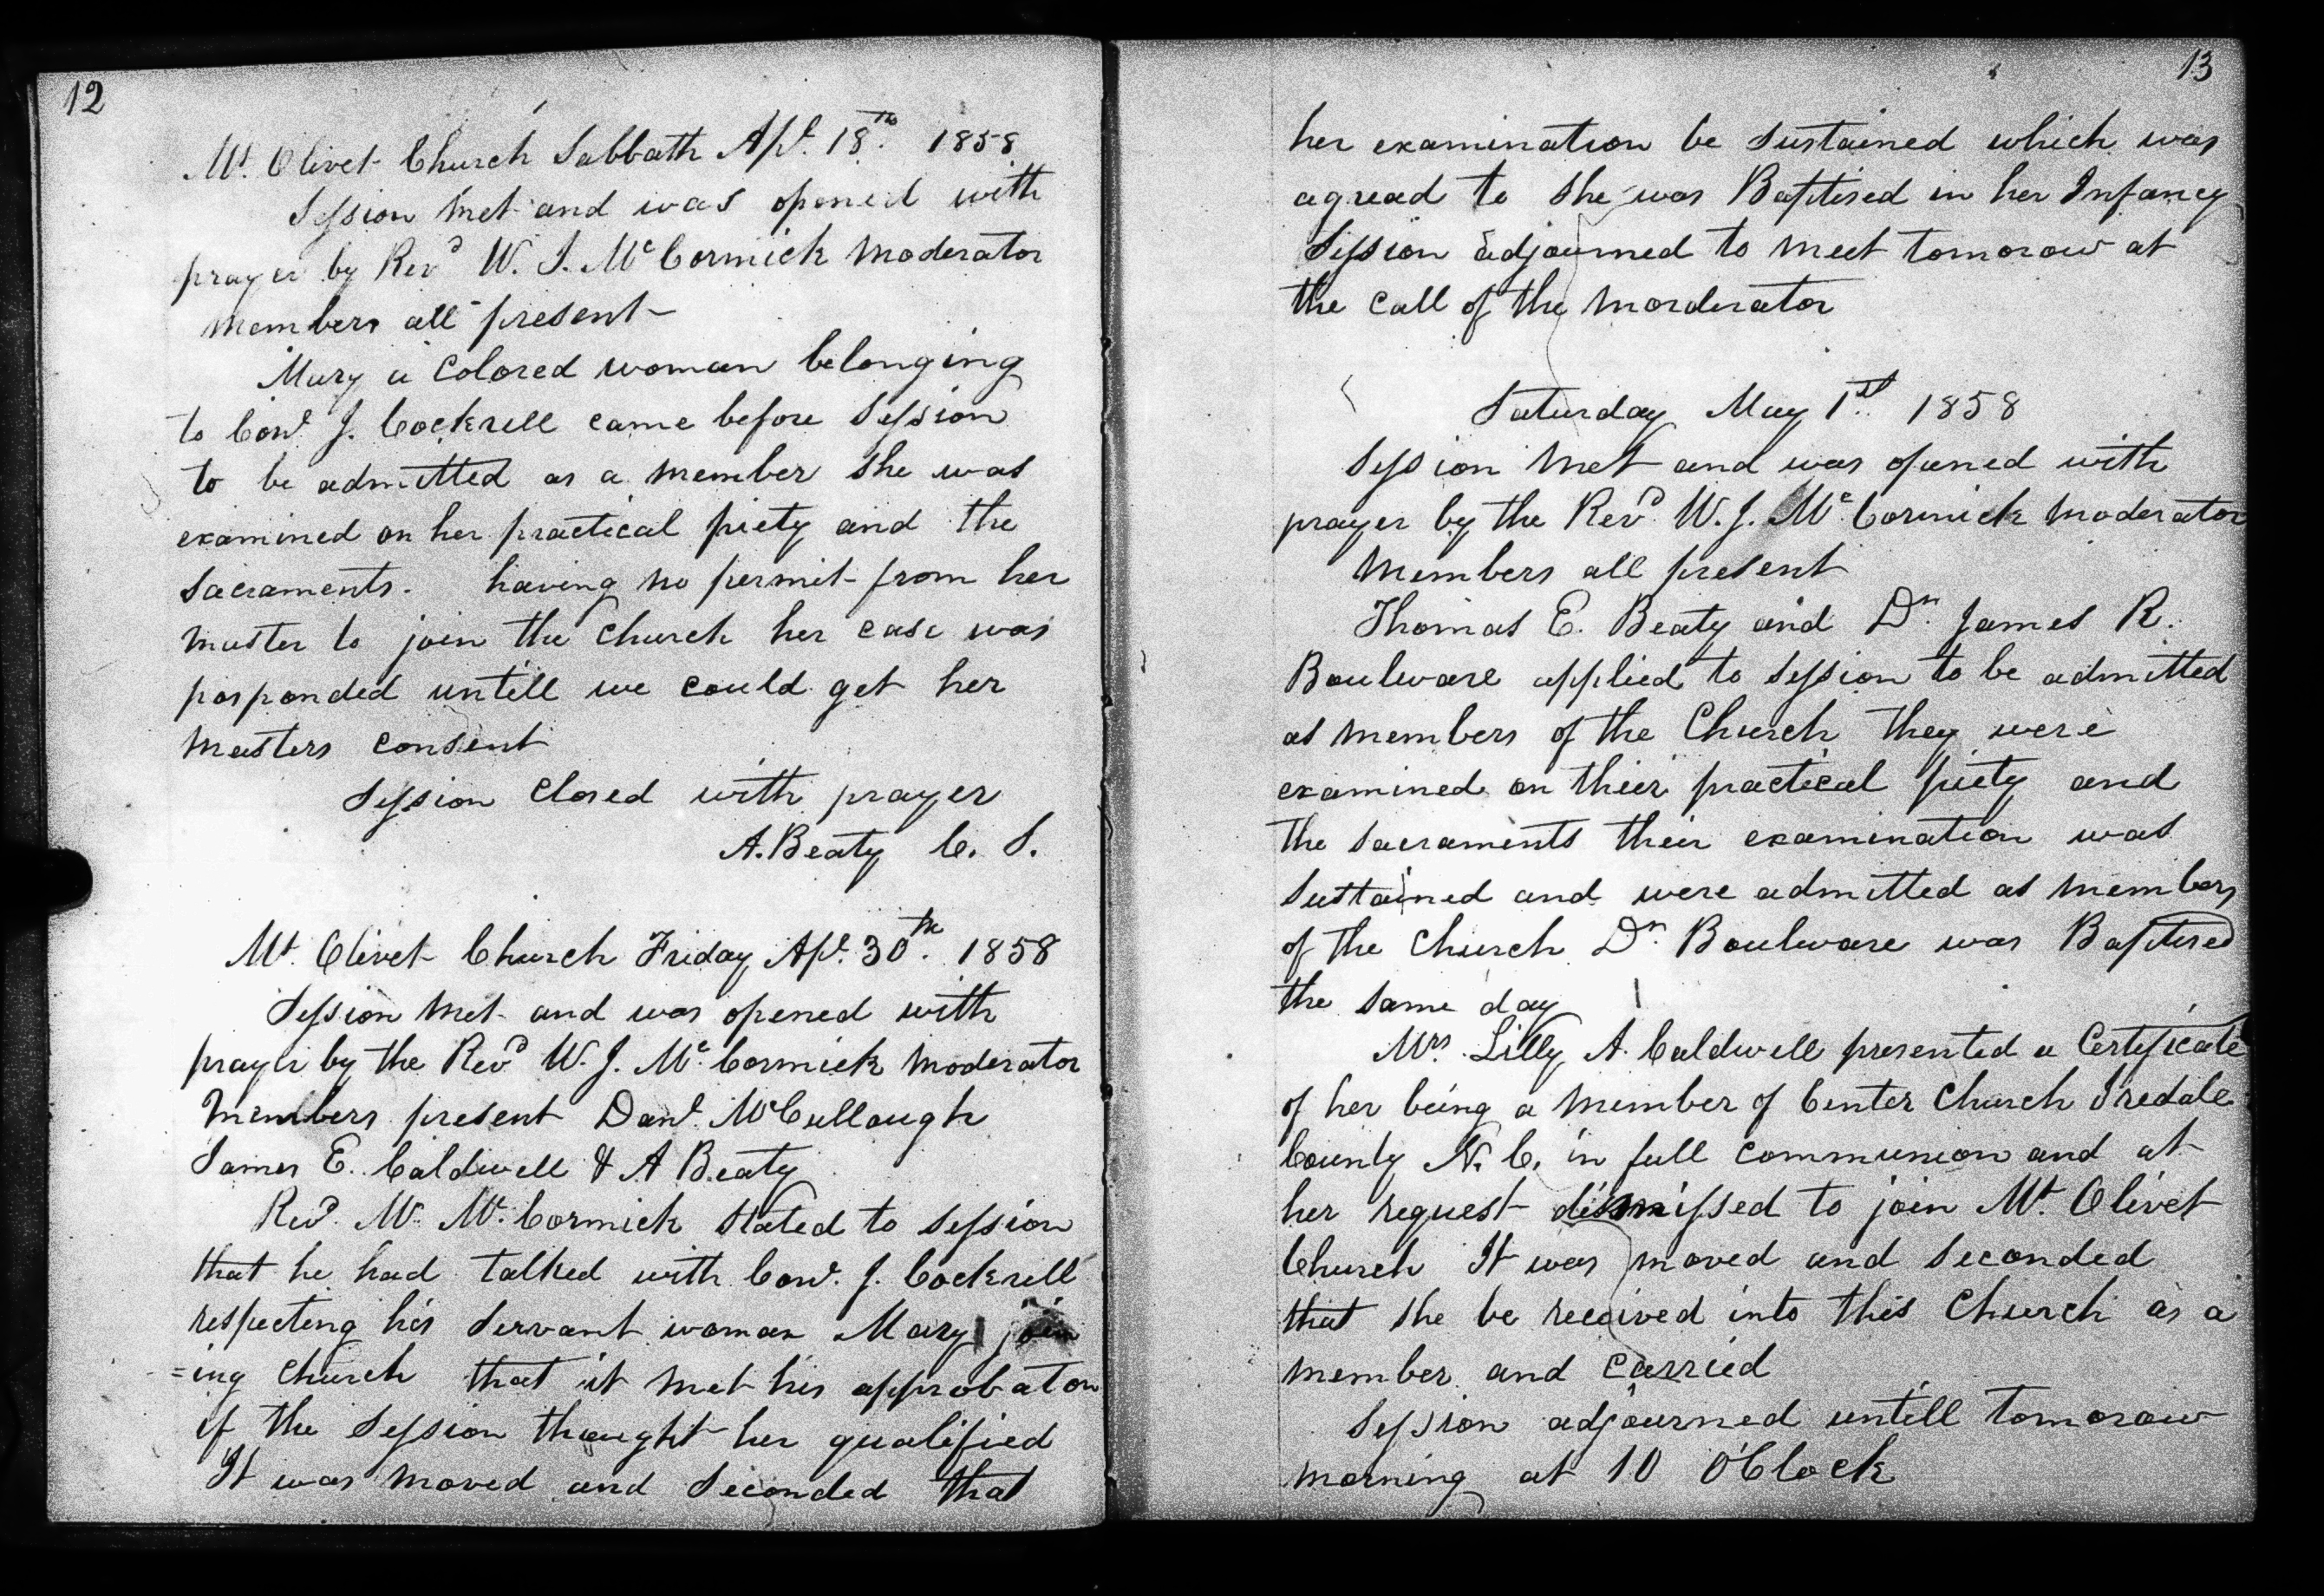 12
Mt. Olivet Church Sabbath Apl. 18th. 1858
Session met and was opened with
prayer by Revd W. J. McCormick moderator
members all present
Mary a Colored woman belonging
to J. Cockrell came before Session
to be admitted as a member she was
examined on her practical piety and the
Sacraments. having no permit from her
master to join the church her case was
posponded untill we could get her
masters consent
Session Closed with prayer
A. Beaty C. S.
Mt. Olivet Church Friday Apl. 30th. 1858
Session met and was opened with
prayer by the Revd W. J. McCormick moderator
members present Danl. McCullough
James E. Caldwell & A Beaty
Revd. Mr. McCormick stated to Session
that he had talked with J. Cockrell
respecting his servant woman Mary join
=ing church that it met his approbaton
if the Session thought her qualified
It was moved and Seconded that
13
her examination be sustained which was
agread to she was Baptised in her Infancy
Session adjourned to meet tomorow at
the call of the morderator
Saturday May 1st. 1858
Session met and was opened with
prayer by the Revd. W. J. McCormick moderator
Members all present
Thomas E. Beaty and Dr. James R.
Boulware applied to Session to be admitted
as members of the Church they were
examined on their practical piety and
the sacraments their examination was
sustained and were admitted as members
of the Church Dr. Boulware was Baptised
the same day
Mrs. Lilly A. Caldwell presented a Certificate
of her being a member of Center Church Iredale
County N. C. in full communion and at
her request dismissed to join Mt. Olivet
Church It was moved and seconded
that she be received into this Church as a
member and carried
Session adjourned untill tomorow
morning at 10 O'Clock